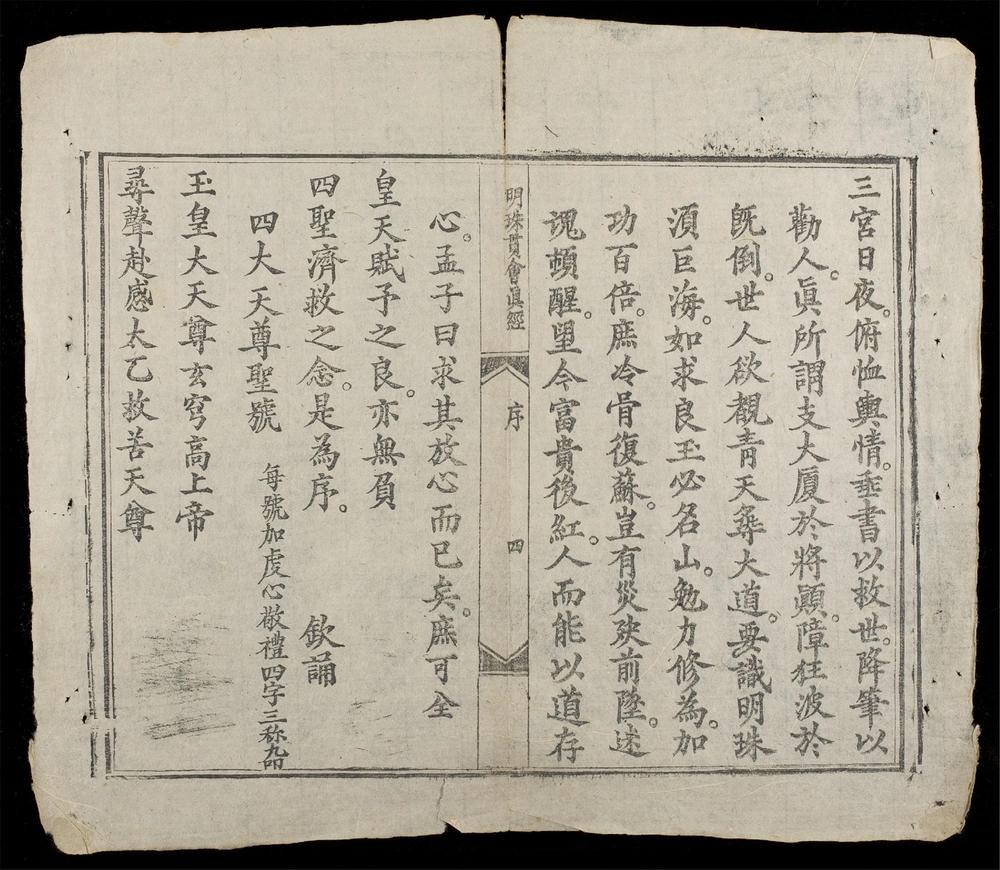 三宮日夜。俯恤輿情。垂書以救世。降筆以
勸人。眞所謂支大厦於將顚。障狂波於
旣倒。世人欲覩青天尋大道。要識明珠
須巨海。如求良玉必名山。勉力修為。加
功百倍。庶冷骨復蘇。豈有災殃前墬。迷
魂頓醒。望今富貴後紅。人而能以道存
明珠貫會眞經
序
四
心。孟子曰求其放心而已矣。庶可全
皇天賦予之良。亦無負
四聖濟救之念。是為序。 欽誦
四大天尊聖號 每號加虔心敬禮四字三称九叩
玉皇大天尊玄穹高上帝
尋聲赴感太乙救苦天尊